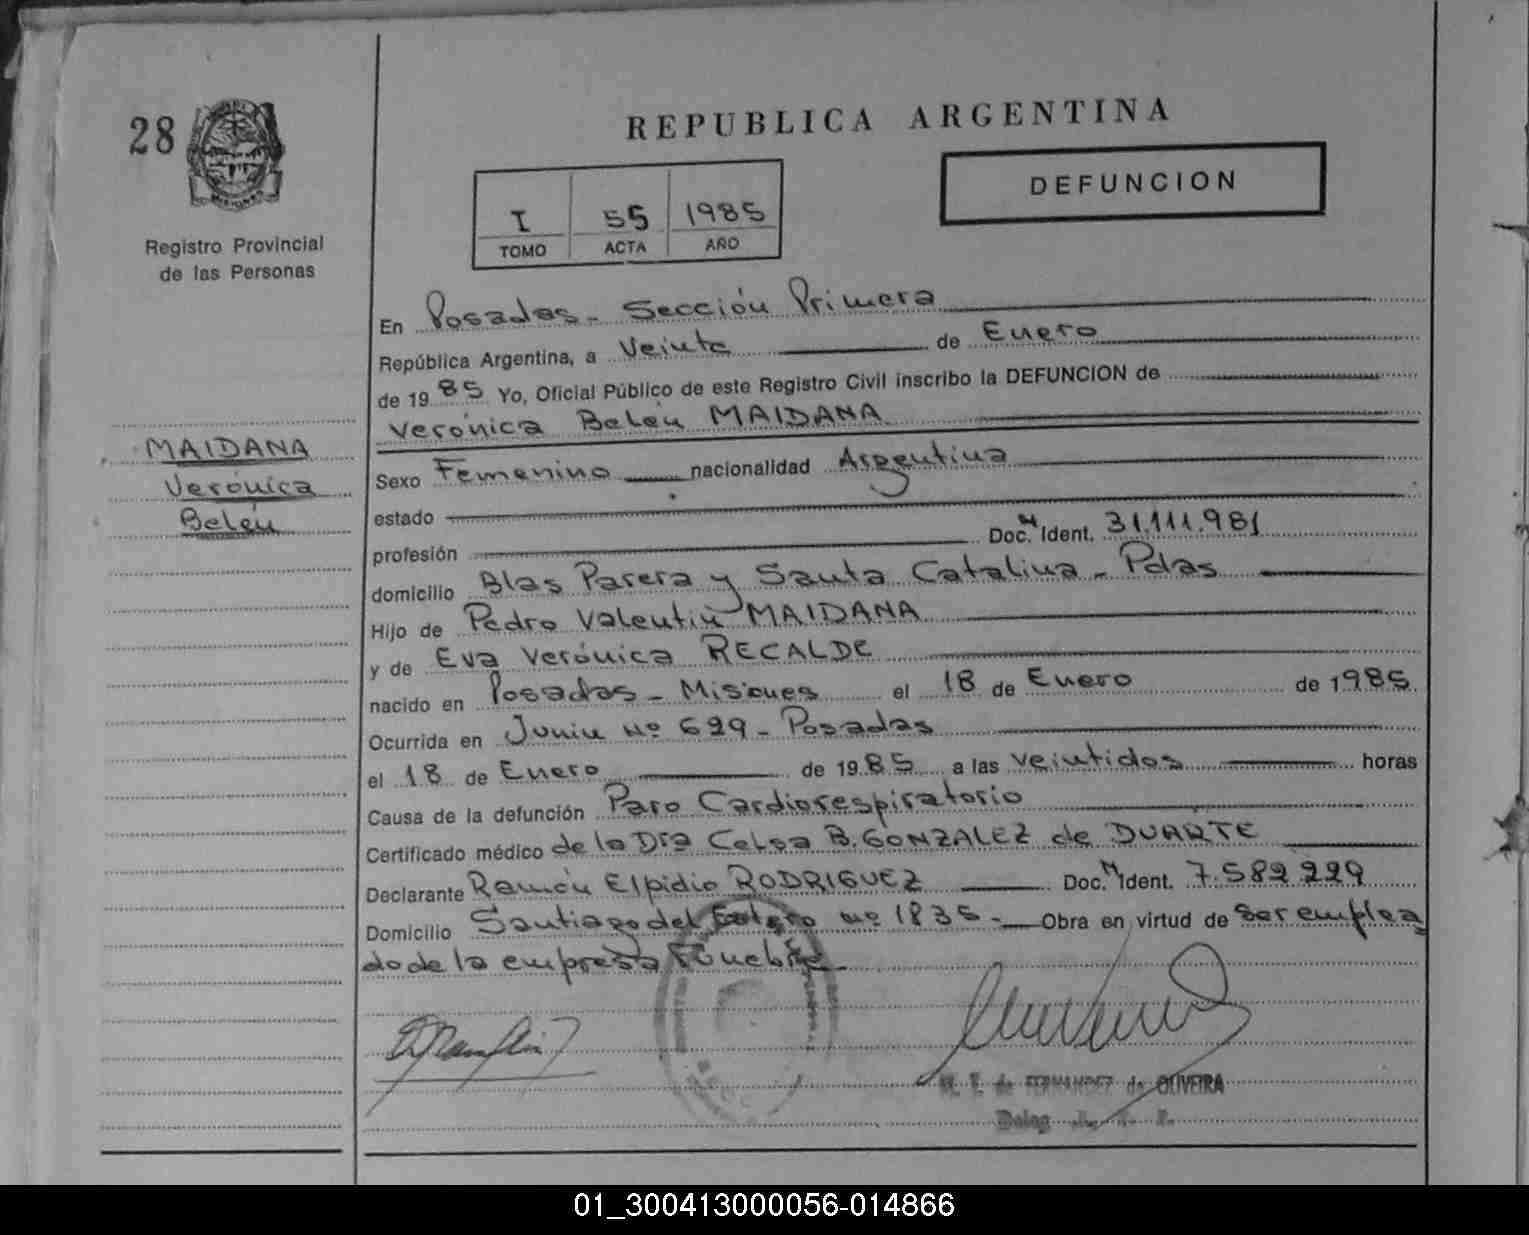 28
REPUBLICA ARGENTINA
Registro Provincial
de las Personas
I 55 1985
TOMO ACTA AÑO
DEFUNCION
MAIDANA
Verónica
Belén
En Posadas - Sección Primera
República Argentina, a Veinte de Enero
de 1985 Yo, Oficial Público de este Registro Civil inscribo la DEFUNCION de
Verónica Belén MAIDANA
Sexo Femenino nacionalidad Argentina
estado
profesión Doc. N Ident. 31.111.981
domicilio Blas Parera y Santa Catalina - Pdas
Hijo de Pedro Valentín MAIDANA
y de Eva Verónica RECALDE
nacido en Posadas - Misiones el 18 de Enero de 1985
Ocurrida en Junin Nº 629 - Posadas
el 18 de Enero de 1985 a las veintidos horas
Causa de la defunción Paro Cardiorespiratorio
Certificado médico de la Dra Celsa B. GONZALEZ de DUARTE
Declarante Ramón Elpidio RODRIGUEZ Doc. N Ident. 7.582 229
Domicilio Santiago del Estero nº 1835 - Obra en virtud de ser emplea
do de la empresa Funebre
M. T. de FERNANDEZ de OLIVEIRA
Deleg
01_300413000056-014866